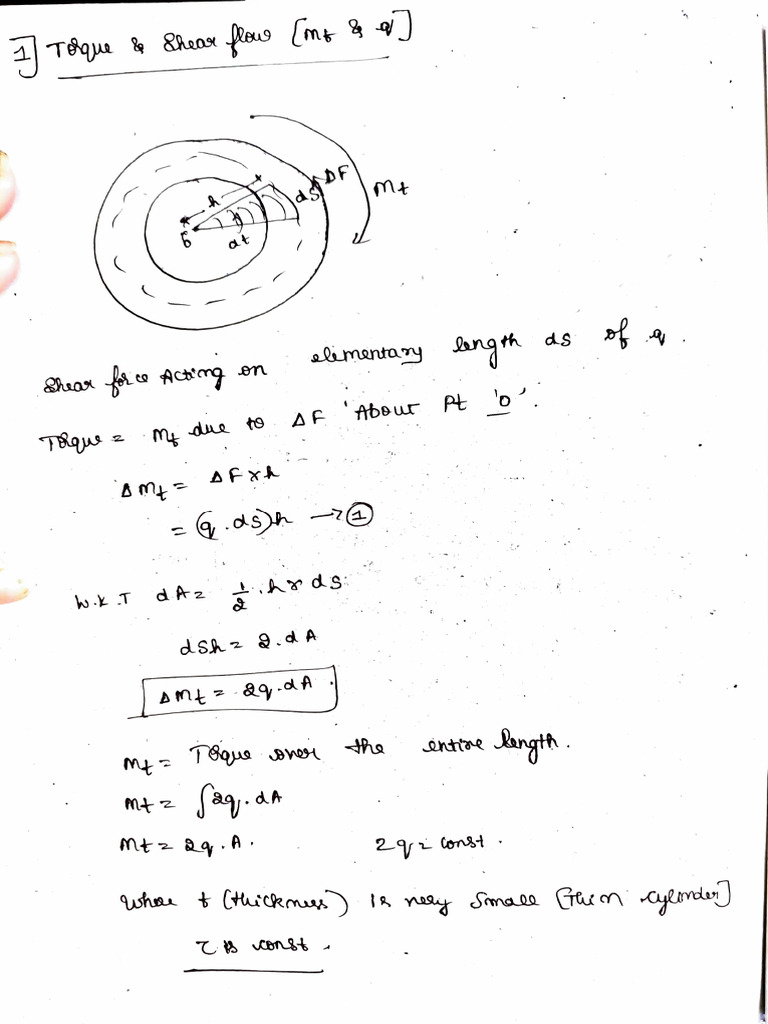 1] Torque & Shear flow [Mt & q]
ΔF
Mt
h
ds
O
dt
Shear force Acting on elementary length ds of q.
Torque = Mt due to ΔF 'About Pt 'O'.
ΔMt = ΔF x h
= (q.ds)h → ①
W.K.T dA = 1/2 . h x ds.
dsh = 2.dA
ΔMt = 2q.dA.
Mt = Torque over the entire length.
Mt = ∫2q.dA
Mt = 2q.A. 2q = const.
Where t (thickness) is very small [thin cylinder]
τ is const.